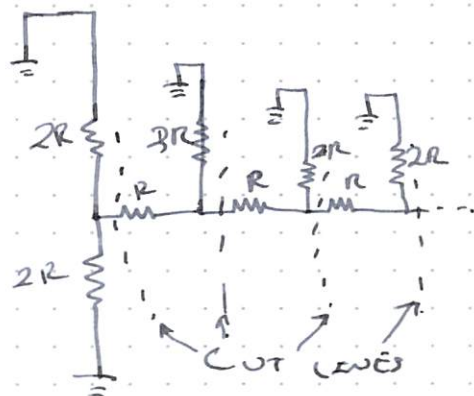 2R 3R 2R 2R
R R R
2R
CUT LINES